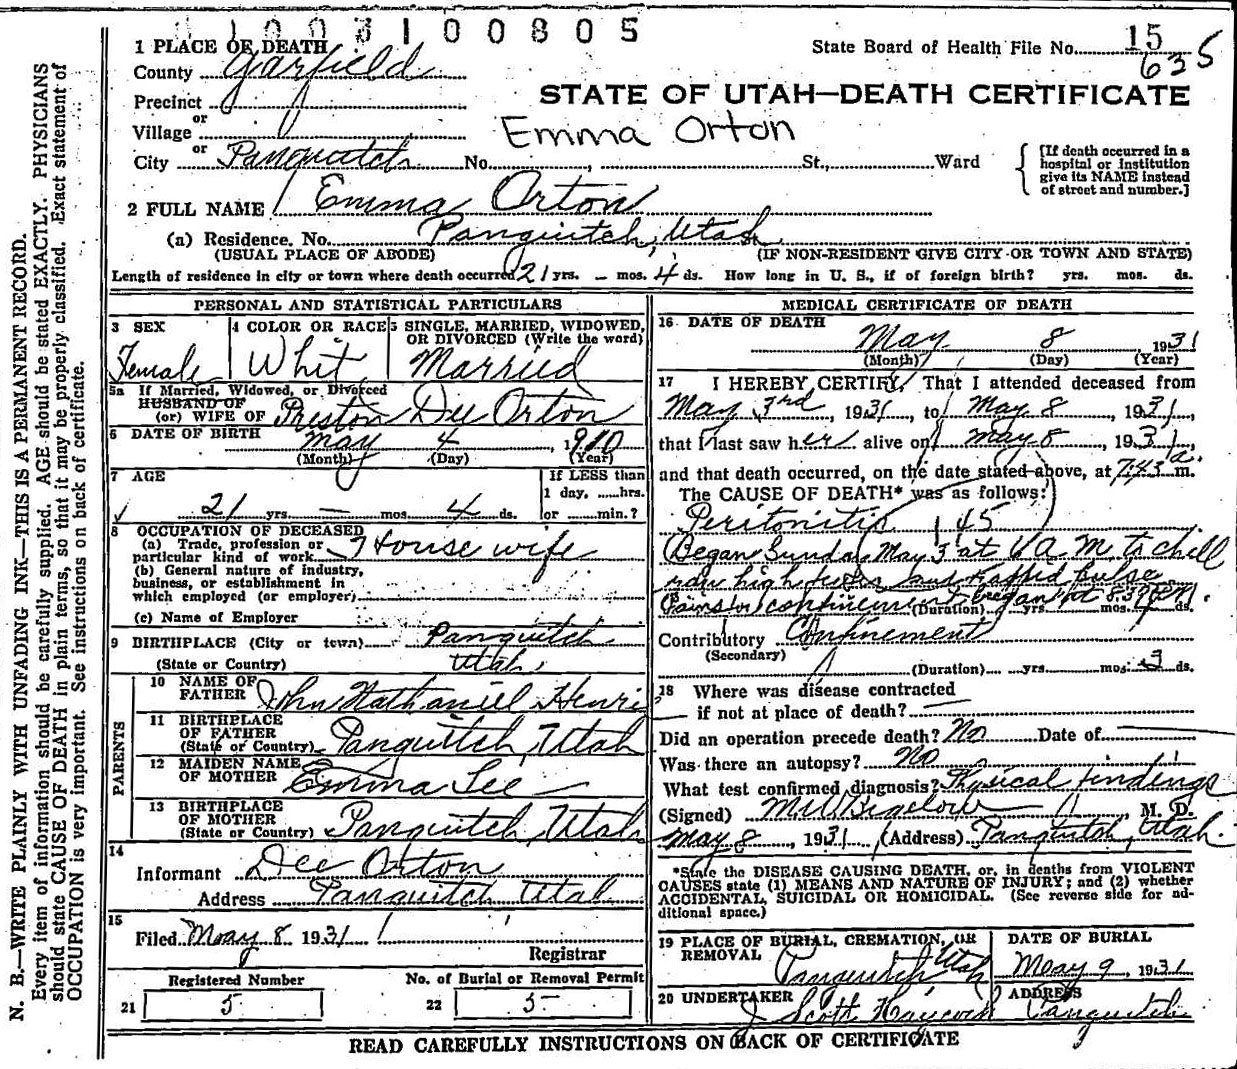 1003100805
1 PLACE OF DEATH
State Board of Health File No. 15
635
County Garfield
Precinct
or
Village
STATE OF UTAH—DEATH CERTIFICATE
Emma Orton
or
City Panguitch No. , St., Ward
[If death occurred in a
hospital or institution
give its NAME instead
of street and number.]
2 FULL NAME Emma Orton
(a) Residence. No. Panguitch, Utah St.
(USUAL PLACE OF ABODE) (IF NON-RESIDENT GIVE CITY OR TOWN AND STATE)
Length of residence in city or town where death occurred 21 yrs. — mos. 4 ds. How long in U. S., if of foreign birth? yrs. mos. ds.
PERSONAL AND STATISTICAL PARTICULARS
3 SEX
Female
4 COLOR OR RACE
Whit
5 SINGLE, MARRIED, WIDOWED,
OR DIVORCED (Write the word)
Married
5a If Married, Widowed, or Divorced
HUSBAND OF
(or) WIFE OF Preston Dee Orton
6 DATE OF BIRTH May 4 1910
(Month) (Day) (Year)
7 AGE
21 yrs. — mos. 4 ds.
If LESS than
1 day, ......hrs.
or ......min.?
8 OCCUPATION OF DECEASED
(a) Trade, profession or
particular kind of work House wife
(b) General nature of industry,
business, or establishment in
which employed (or employer)
(c) Name of Employer
9 BIRTHPLACE (City or town) Panguitch
(State or Country) Utah
PARENTS
10 NAME OF
FATHER John Nathaniel Henri
11 BIRTHPLACE
OF FATHER
(State or Country) Panguitch, Utah
12 MAIDEN NAME
OF MOTHER Emma Lee
13 BIRTHPLACE
OF MOTHER
(State or Country) Panguitch, Utah
14
Informant Dee Orton
Address Panguitch Utah
15
Filed May 8 1931
Registrar
Registered Number
21 5
No. of Burial or Removal Permit
22 5
MEDICAL CERTIFICATE OF DEATH
16 DATE OF DEATH
May 8 1931
(Month) (Day) (Year)
17 I HEREBY CERTIFY, That I attended deceased from
May 3rd, 1931, to May 8, 1931,
that I last saw her alive on May 8, 1931,
and that death occurred, on the date stated above, at 7:43 a. m.
The CAUSE OF DEATH* was as follows:
Peritonitis 145
Began Sunday May 3 at A M chill
high pulse
Pains confinement began at 8:30
(Duration) yrs. mos. ds.
Contributory Confinement
(Secondary)
(Duration) yrs. mos. 3 ds.
18 Where was disease contracted
if not at place of death?
Did an operation precede death? No Date of
Was there an autopsy? No
What test confirmed diagnosis? Physical findings
(Signed) M W Bigelow, M. D.
May 8, 1931 (Address) Panguitch, Utah.
*State the DISEASE CAUSING DEATH, or, in deaths from VIOLENT
CAUSES state (1) MEANS AND NATURE OF INJURY; and (2) whether
ACCIDENTAL, SUICIDAL OR HOMICIDAL. (See reverse side for ad-
ditional space.)
19 PLACE OF BURIAL, CREMATION, OR
REMOVAL
Panguitch, Utah
DATE OF BURIAL
May 9, 1931
20 UNDERTAKER
J Scott Haycock
ADDRESS
Panguitch
READ CAREFULLY INSTRUCTIONS ON BACK OF CERTIFICATE
N. B.—WRITE PLAINLY WITH UNFADING INK—THIS IS A PERMANENT RECORD.
Every item of information should be carefully supplied. AGE should be stated EXACTLY. PHYSICIANS
should state CAUSE OF DEATH in plain terms, so that it may be properly classified. Exact statement of
OCCUPATION is very important. See instructions on back of certificate.